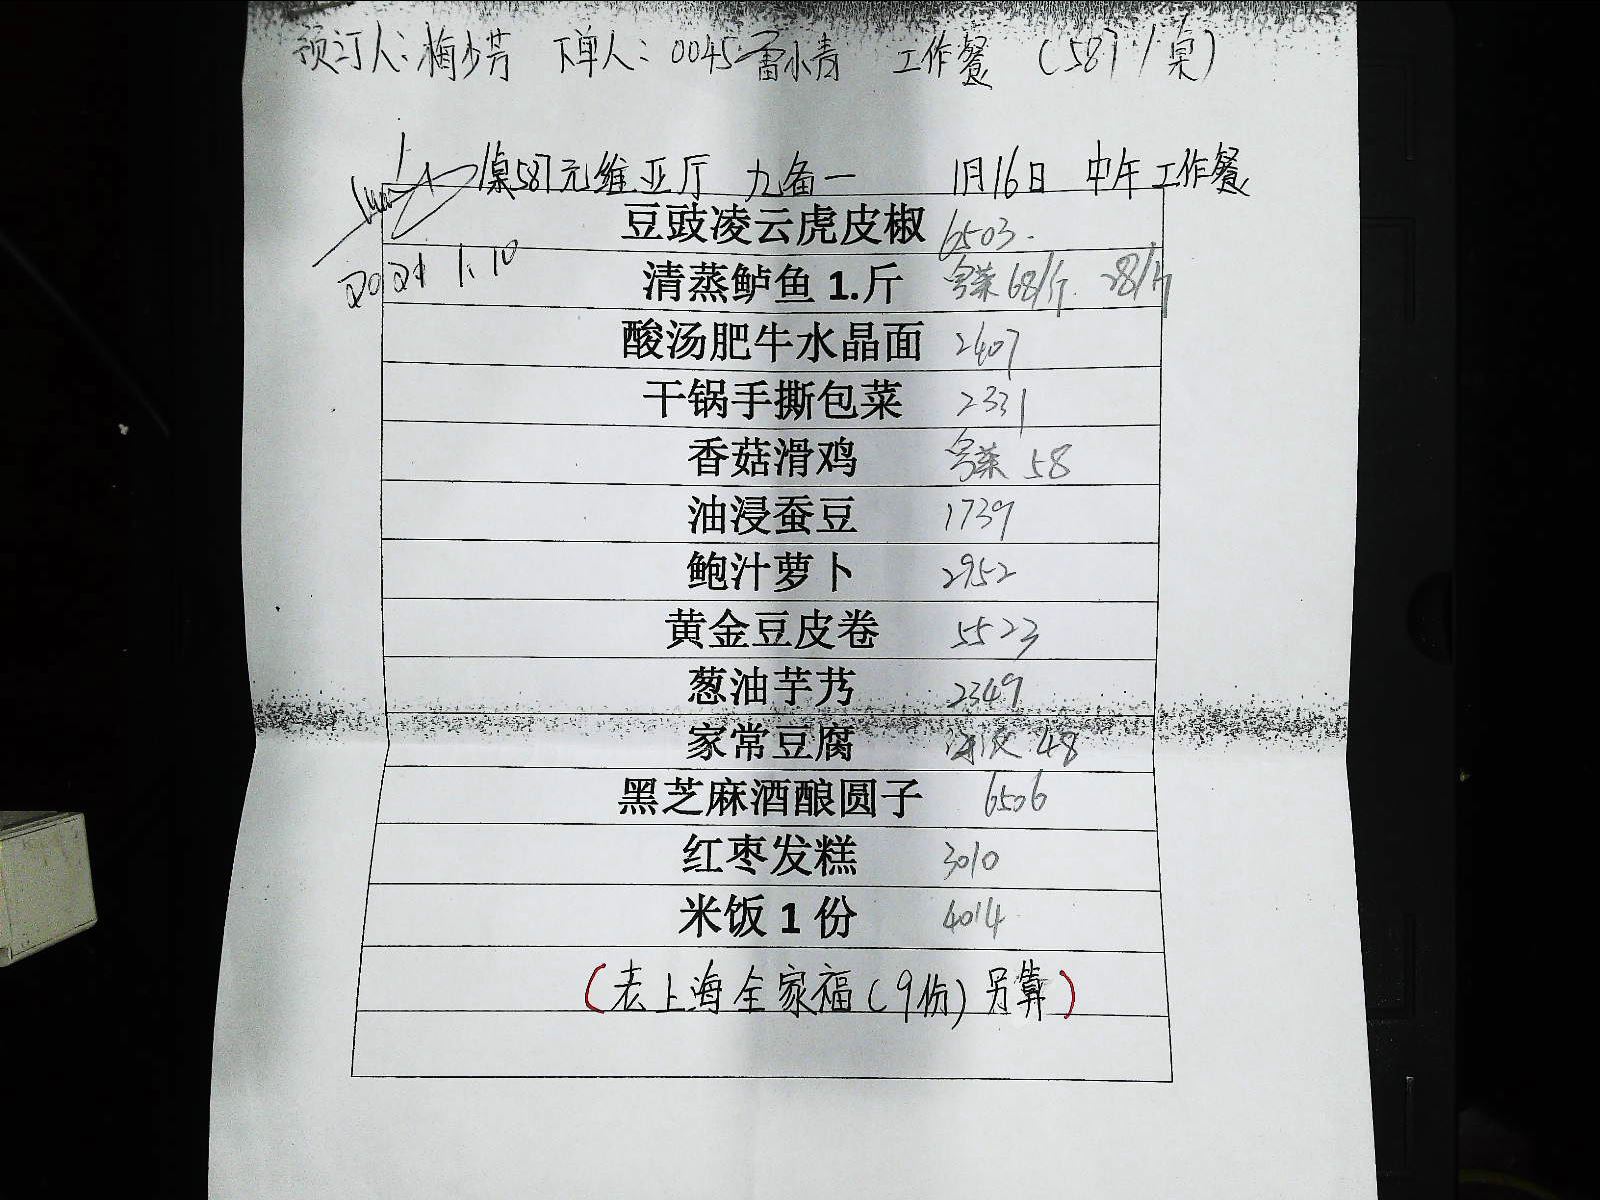 预订人：梅少芳 下单人：0045雷小青 工作餐 （587/桌）
1桌587元维亚厅 九备一 1月16日 中午工作餐
2021 1.10
豆豉凌云虎皮椒 6503.
清蒸鲈鱼1.斤 粤菜 68/斤. 28/斤
酸汤肥牛水晶面 2407
干锅手撕包菜 2331
香菇滑鸡 粤菜 58
油浸蚕豆 1739
鲍汁萝卜 2952
黄金豆皮卷 5523
葱油芋艿 2349
家常豆腐 48
黑芝麻酒酿圆子 6506
红枣发糕 3010
米饭1份 4014
（老上海全家福（9份）另算）